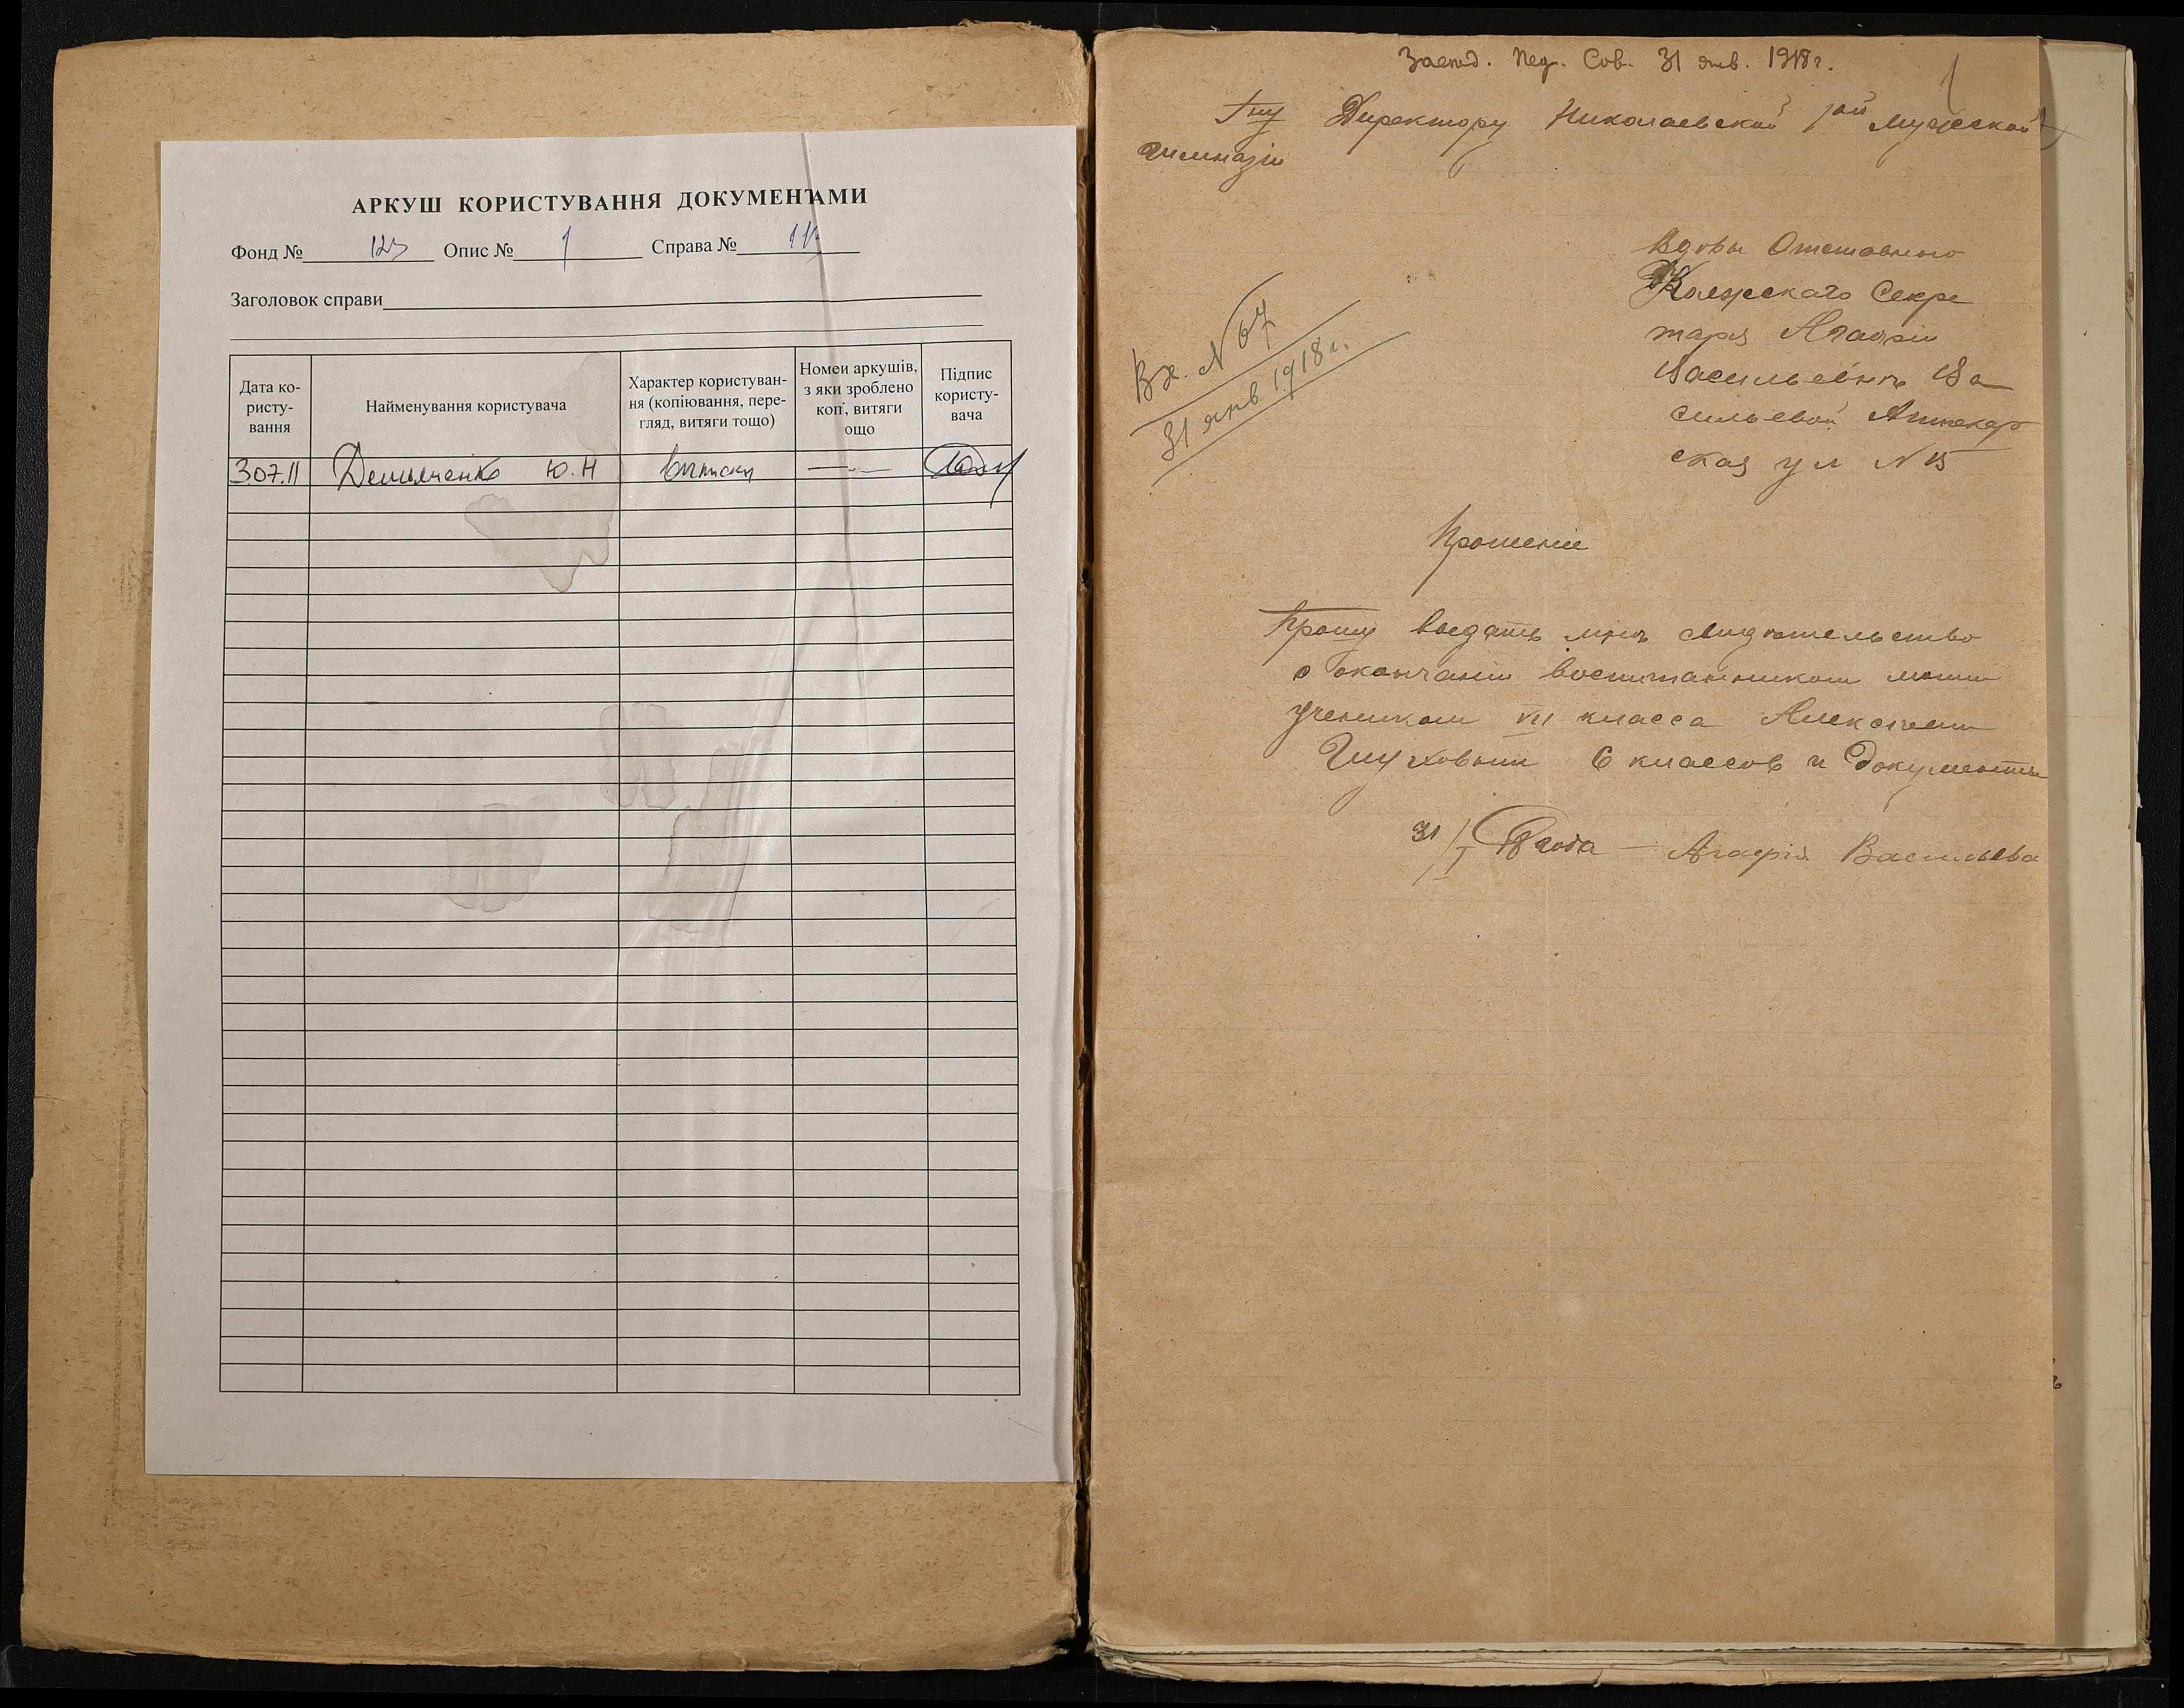 АРКУШ КОРИСТУВАННЯ ДОКУМЕНТАМИ
Фонд № 123 Опис № 1 Справа №
Заголовок справи
Дата ко-
ристу-
вання
Найменування користувача
Характер користуван-
ня (копіювання, пере-
гляд, витяги тощо)
Номеи аркушів,
з яки зроблено
коп, витяги
ощо
Підпис
користу-
вача
3.07.11 Демьянченко Ю.Н выписки
Засед. Пед. Сов. 31 янв. 1918 г.
1
Гну Директору Николаевской 1ой Мужской
Гимназіи
Вдовы Отставного
Коллежскаго Секре
таря Агафіи
Васильевнъ Ва
сильевой Аптекар
ская ул N 15
Вх. N 67
31 янв 1918 г.
Прошеніе
Прошу выдать мнъ свидътельство
о окончаніи воспитанником моим
учеником VII класса Алексъем
6 классов и документы
31/I 18 года — Агафія Васильева